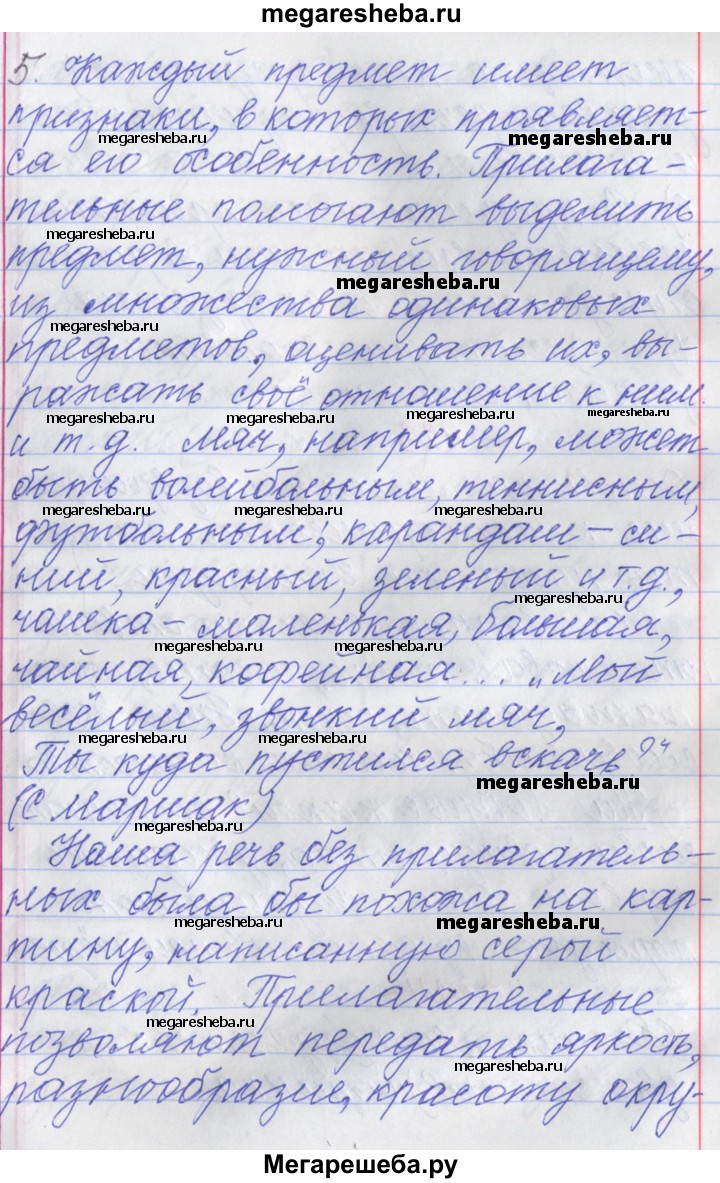 megaresheba.ru
5. Каждый предмет имеет
признаки, в которых проявляет-
megaresheba.ru megaresheba.ru
ся его особенность. Прилага-
тельные помогают выделить
megaresheba.ru
предмет, нужный говорящему,
megaresheba.ru
из множества одинаковых
megaresheba.ru
предметов, оценивать их, вы-
ражать своё отношение к ним.
megaresheba.ru megaresheba.ru megaresheba.ru megaresheba.ru
и т.д. Мяч, например, может
быть волейбольным, теннисным,
megaresheba.ru megaresheba.ru megaresheba.ru megaresheba.ru
футбольным; карандаш – си-
ний, красный, зеленый и т.д.,
megaresheba.ru
чашка – маленькая, большая,
megaresheba.ru megaresheba.ru
чайная, кофейная... „Мой
весёлый, звонкий мяч,
megaresheba.ru megaresheba.ru
Ты куда пустился вскачь?"
megaresheba.ru
(С Маршак)
megaresheba.ru
Наша речь без прилагатель-
ных была бы похожа на кар-
megaresheba.ru
тину, написанную серый
краской. Прилагательные
megaresheba.ru
позволяют передать яркость,
megaresheba.ru
разнообразие, красоту окру-
Мегарешеба.ру